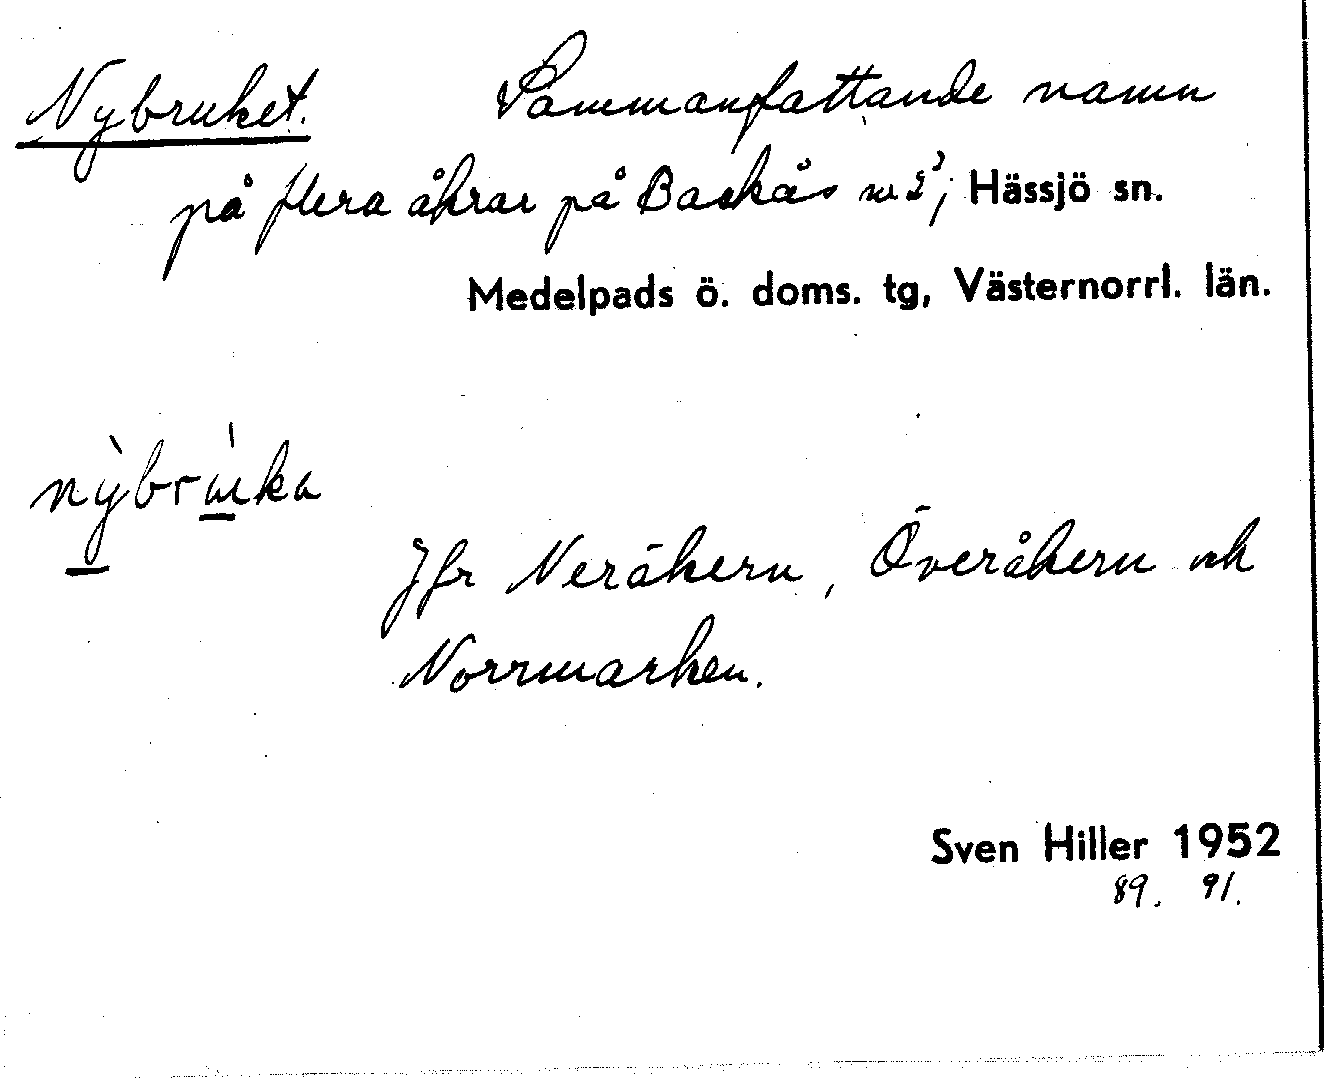 Nybruket. Sammanfattande namn
på flera åkrar på Backås nr 2³, Hässjö sn.
Medelpads ö. doms. tg, Västernorrl. län.
Jfr Neråkern, Överåkern och
Norrmarken.
Sven Hiller 1952
89. 91.